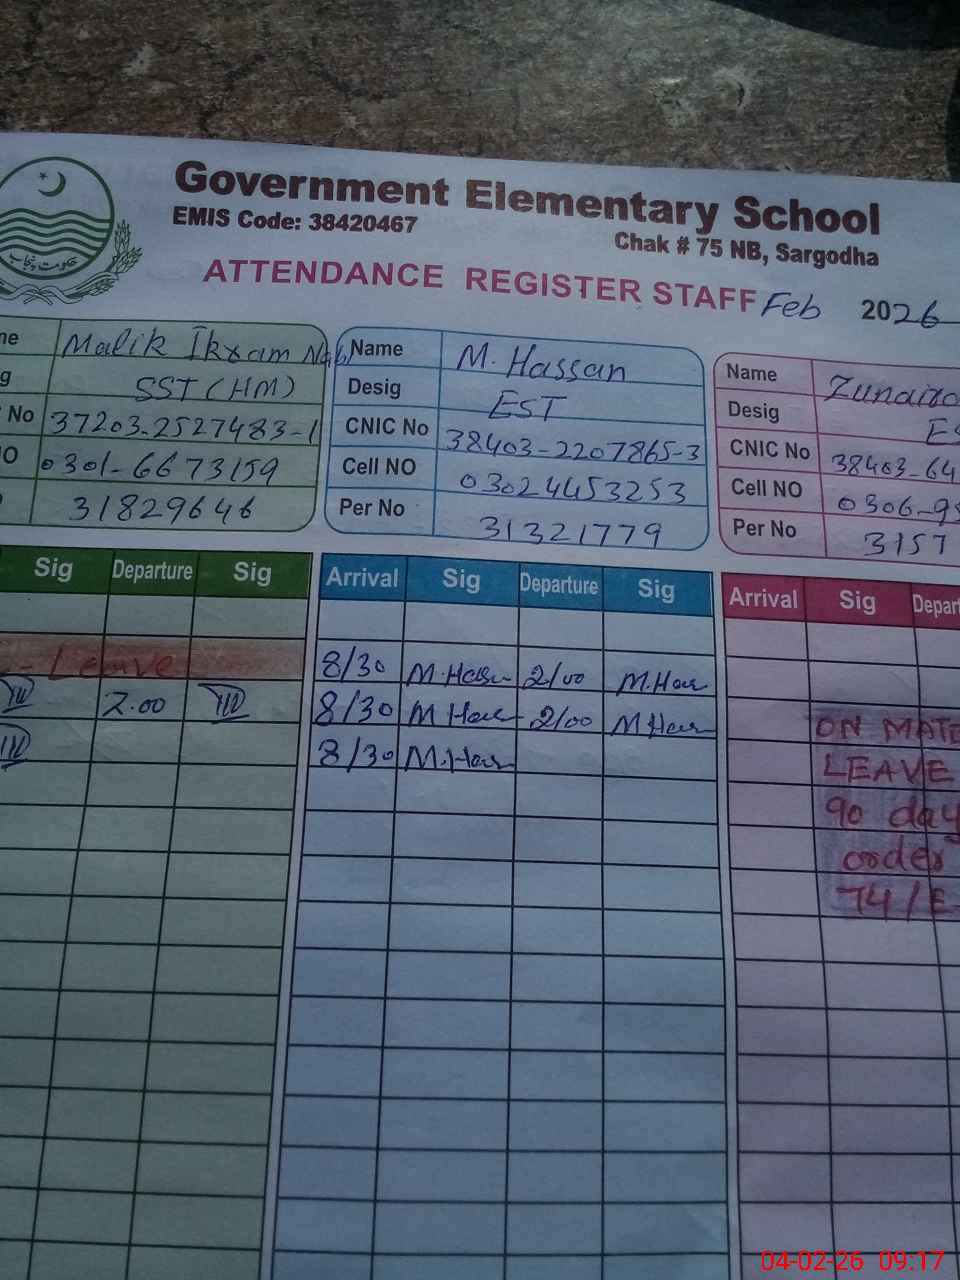 Government Elementary School
EMIS Code: 38420467
Chak # 75 NB, Sargodha
حکومت پنجاب
ATTENDANCE REGISTER STAFF Feb 2026
Malik Ikram
SST (HM)
No 37203-2527483-1
0301-6673159
31829646
Name M. Hassan
Desig EST
CNIC No 38403-2207865-3
Cell NO 03024453253
Per No 31321779
Name Zunaira
Desig ES
CNIC No 38403-64
Cell NO 0306-9
Per No 3157
Sig Departure Sig
Leave
2.00
Arrival Sig Departure Sig
8/30 M.Hassan 2/00 M.Has
8/30 M Has 2/00 M Has
8/30 M.Has
Arrival Sig Depart
ON MATE
LEAVE
90 day
order
74/E-
04-02-26 09:17